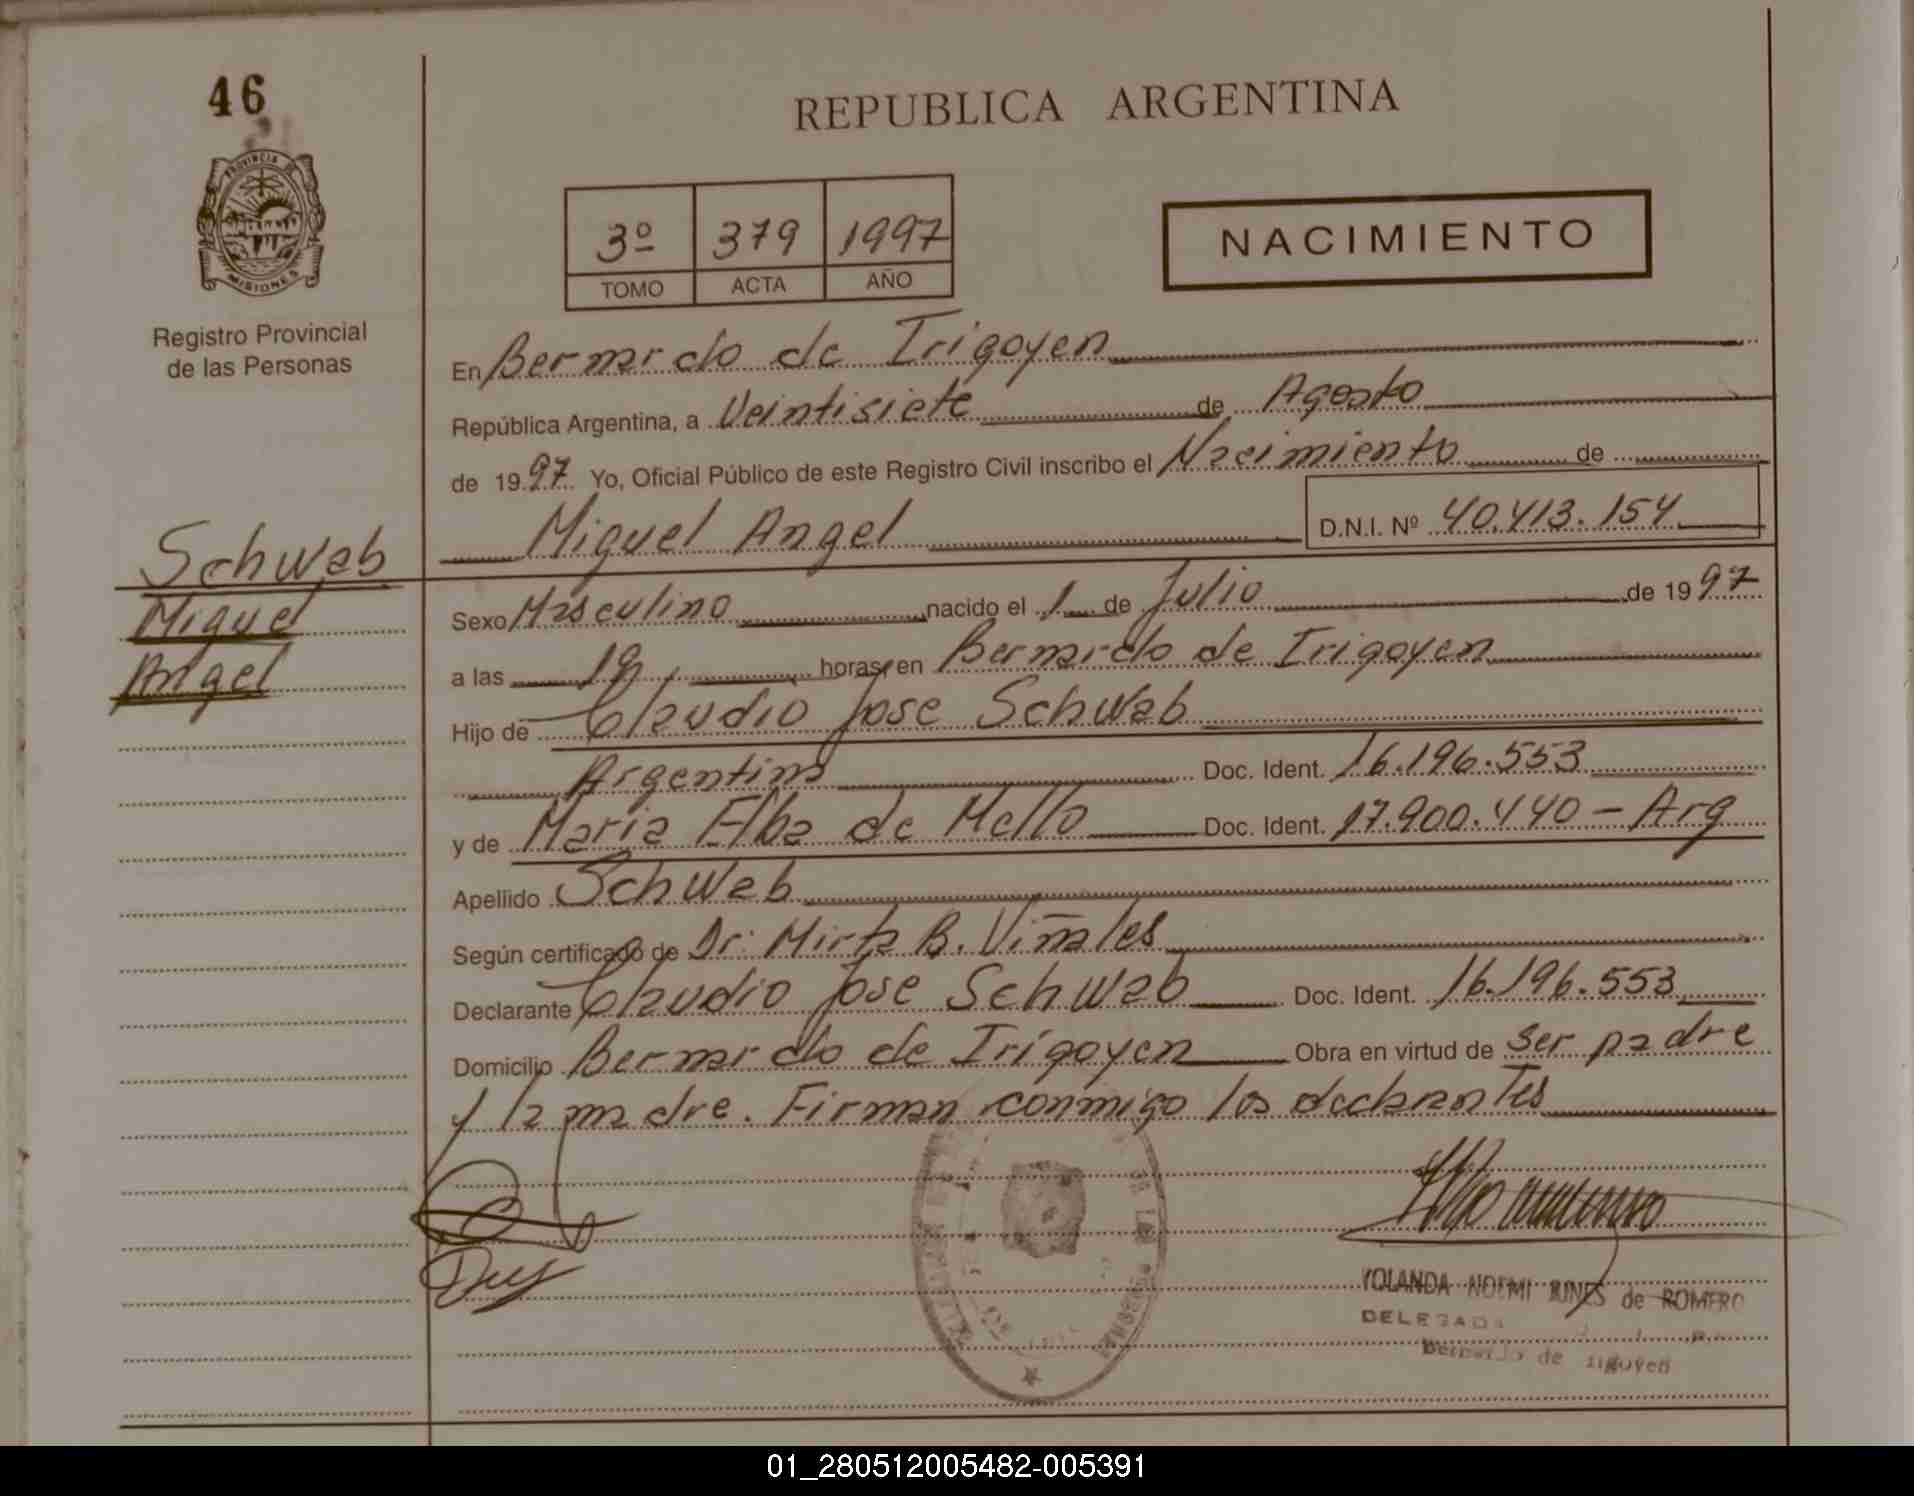 46
REPUBLICA ARGENTINA
PROVINCIA DE
MISIONES
Registro Provincial
de las Personas
3º 379 1997
TOMO ACTA AÑO
NACIMIENTO
En Bernardo de Irigoyen
República Argentina, a Veintisiete de Agosto
de 1997 Yo, Oficial Público de este Registro Civil inscribo el Nacimiento de
Miguel Angel D.N.I. Nº 40.413.154
Schwab
Miguel
Angel
Sexo Masculino nacido el 1 de Julio de 1997
a las 19 horas, en Bernardo de Irigoyen
Hijo de Claudio Jose Schwab
Argentino Doc. Ident. 16.196.553
y de Maria Elba de Mello Doc. Ident. 17.900.440 - Arg
Apellido Schwab
Según certificado de Dr: Mirta B. Viñales
Declarante Claudio Jose Schwab Doc. Ident. 16.196.553
Domicilio Bernardo de Irigoyen Obra en virtud de ser padre
y la madre. Firman conmigo los declarantes
YOLANDA NOEMI de ROMERO
DELEGADA
Bernardo de Irigoyen
01_280512005482-005391